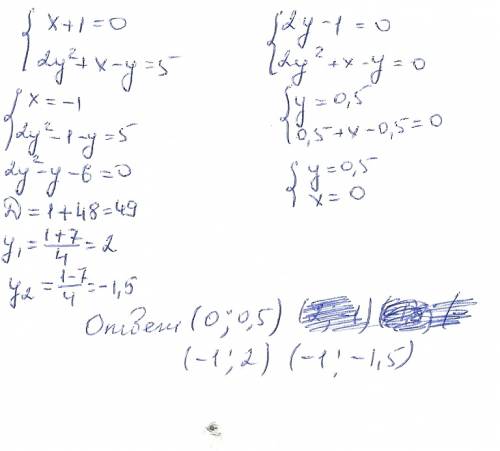 x + 1 = 0
2y² + x - y = 5
x = -1
2y² - 1 - y = 5
2y² - y - 6 = 0
D = 1 + 48 = 49
y₁ = (1+7)/4 = 2
y₂ = (1-7)/4 = -1,5
2y - 1 = 0
2y² + x - y = 0
y = 0,5
0,5 + x - 0,5 = 0
y = 0,5
x = 0
Ответ (0; 0,5)
(-1; 2) (-1; -1,5)